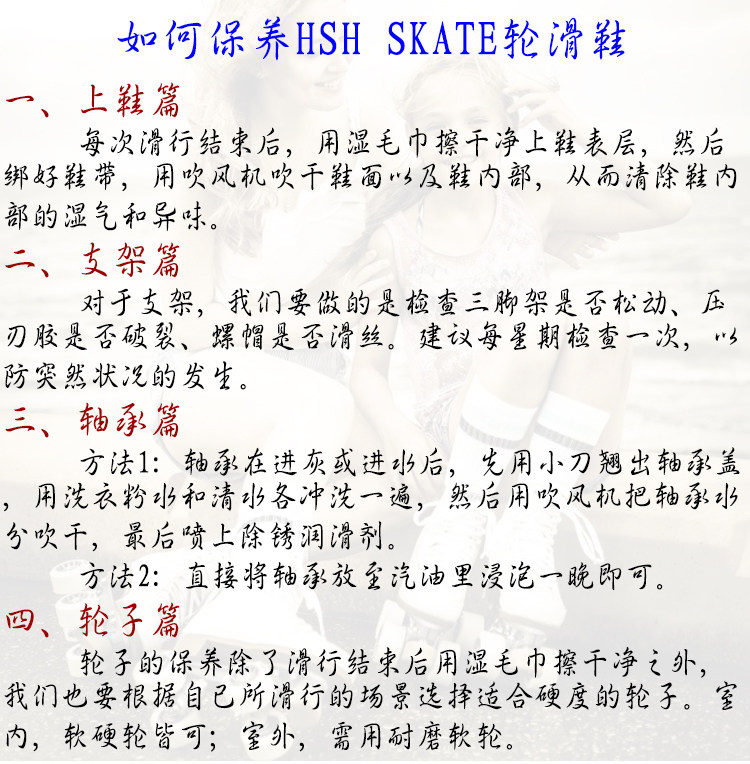 如何保养HSH SKATE轮滑鞋
一、上鞋篇
每次滑行结束后，用湿毛巾擦干净上鞋表层，然后
绑好鞋带，用吹风机吹干鞋面以及鞋内部，从而清除鞋内
部的湿气和异味。
二、支架篇
对于支架，我们要做的是检查三脚架是否松动、压
刃胶是否破裂、螺帽是否滑丝。建议每星期检查一次，以
防突然状况的发生。
三、轴承篇
方法1：轴承在进灰或进水后，先用小刀翘出轴承盖
，用洗衣粉水和清水各冲洗一遍，然后用吹风机把轴承水
分吹干，最后喷上除锈润滑剂。
方法2：直接将轴承放至汽油里浸泡一晚即可。
四、轮子篇
轮子的保养除了滑行结束后用湿毛巾擦干净之外，
我们也要根据自已所滑行的场景选择适合硬度的轮子。室
内，软硬轮皆可；室外，需用耐磨软轮。